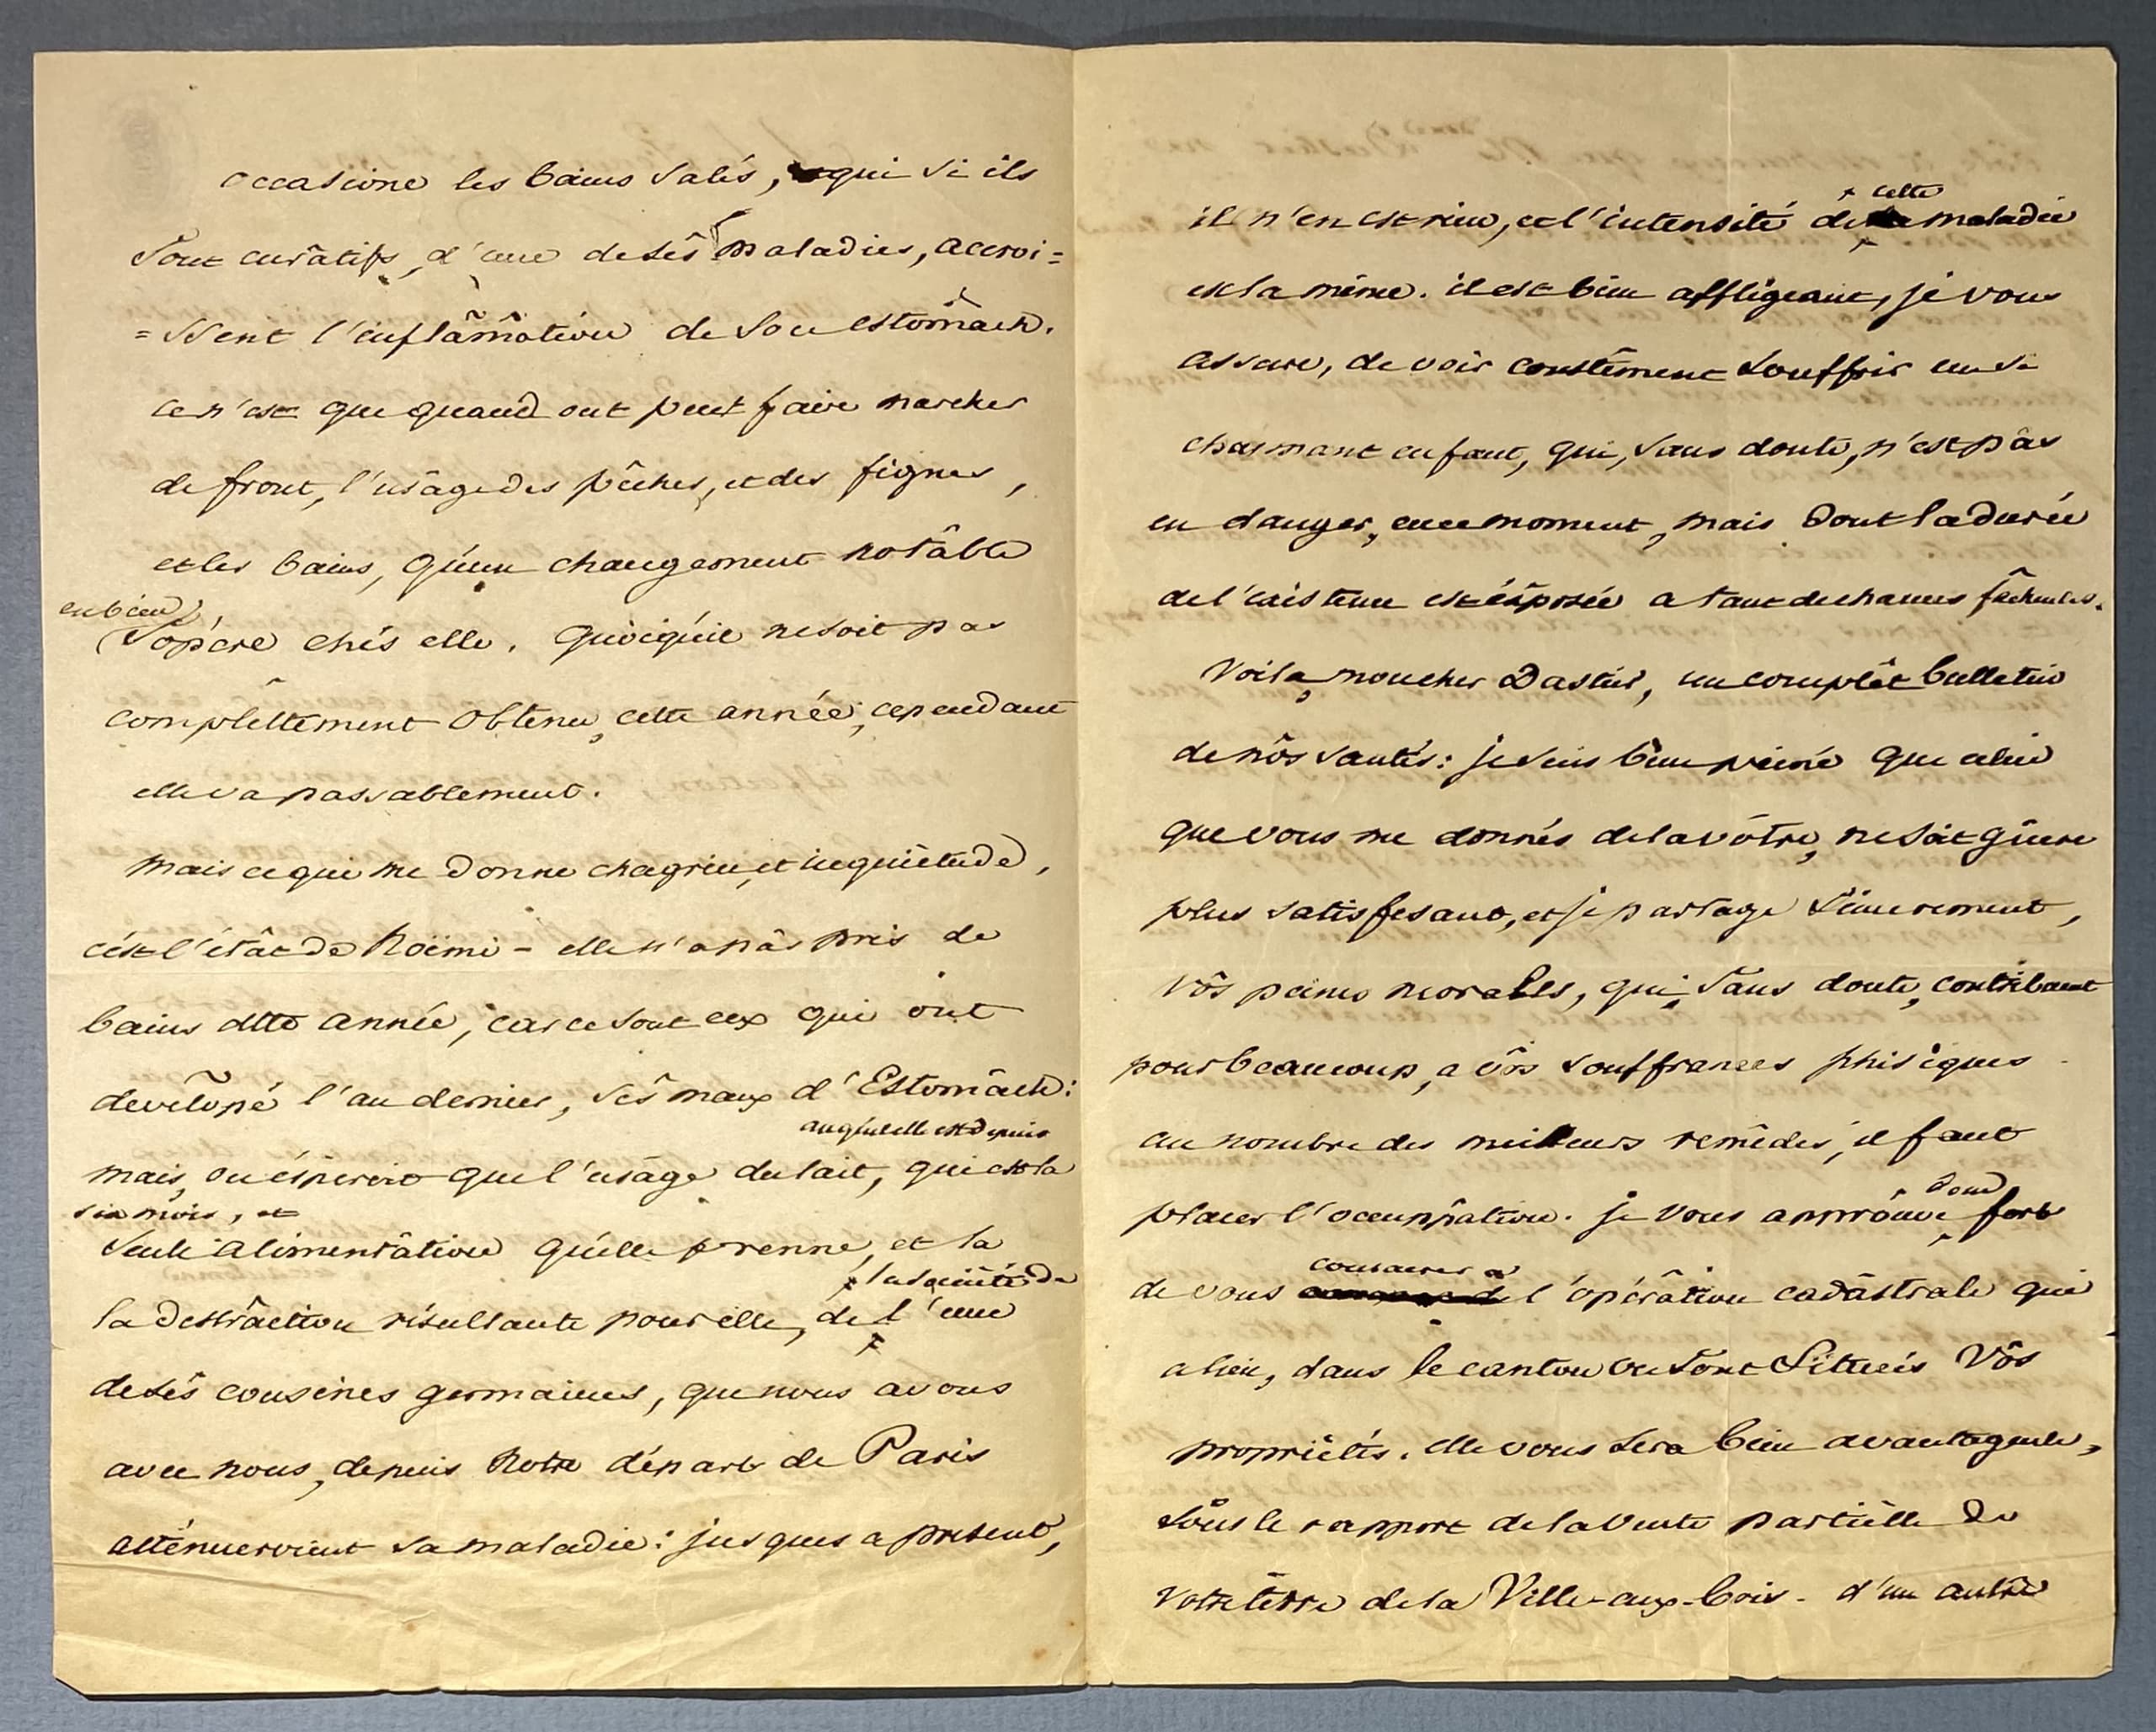 occasione les bains salés, qui si ils
sont curâtifs, d'une de sês maladies, accroi=
=ssent l'inflâmâtion de son estomâch.
ce n'est que quand ont peut faire marcher
de front, l'usâge des pêches, et des figues,
et les bains, qu'un changement notâble
en bien
s'opère chés elle. quoiqu'il ne soit pas
complêttement obtenu, cette année, cependant
elle va passablement.
mais ce qui me donne chagrin, et inquiêtude,
c'est l'êtât de Noëmi - elle n'a pâs pris de
bains cette année, car ce sont eux qui ont
devêlopé l'an dernier, sês maux d'Estomâch:
auquel elle est depuis
mais, on éspéroit que l'usâge du lait, qui est la
six mois, et
seule alimentâtion qu'elle prenne, et la
la société de
la distrâction résultante pour elle, de l'une
de sês cousines germaines, que nous avons
avec nous, depuis notre départ de Paris
atténueroient sa maladie: jusques a présent,
cette
il n'en est rien, et l'intensité de maladie
est la même. il est bien affligeant, je vous
assure, de voir constâment souffrir un si
charmant enfant, qui, sans doute, n'est pâs
en danger, en ce moment, mais dont la durée
de l'existence est éxposée a tant de chances fâcheuses.
Voila, mon cher Dastier, un complêt bulletin
de nôs santés: je suis bien peiné que celui
que vous me donnés de la vôtre, ne soit guère
plus satisfesant, et je partage sincerement,
vôs peines morales, qui, sans doute, contribuent
pour beaucoup, a vôs souffrances phisiques
au nombre des meilleurs remêdes, il faut
donc
placer l'occupâtion. je vous approuve fort
consacrer a
de vous l'opérâtion cadâstrale qui
a lieu, dans le canton ou sont situées Vôs
propriétés. elle vous sera bien avantageuse,
sous le rapport de la vente partielle de
votre terre de la Ville-aux-bois - d'un autre